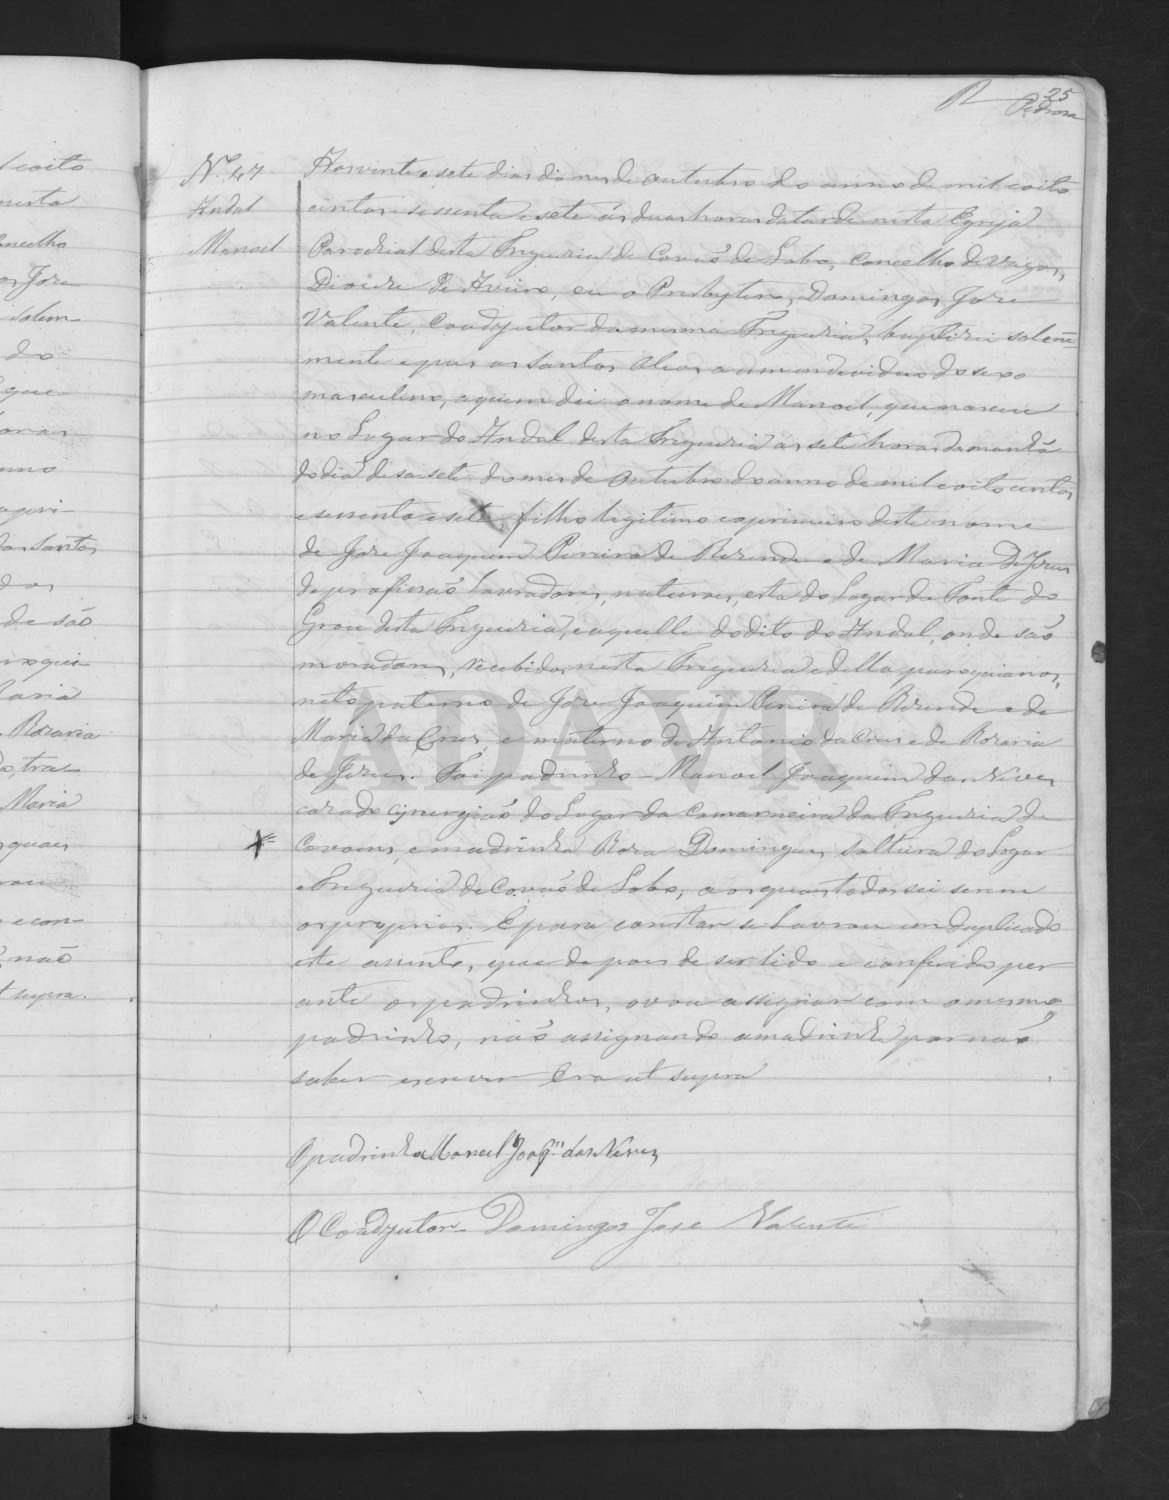 25
Pedrosa
Nº 47
Andal
Manoel
Aos vinte e sete dias do mes de Outubro do anno de mil oito
centos e sessenta e sete ás duas horas da tarde nesta Egreja
Parochial desta Freguezia de Covaõ do Lobo, Concelho de Vagos,
Diocese de Aveiro, eu o Presbytero, Domingos Jose
Valente, Coadjutor da mesma Freguezia, baptizei solem=
mente e puz os Santos Oleos a um individuo do sexo
masculino, a quem dei o nome de Manoel, que nasceu
no Lugar do Andal desta Freguezia as sete horas da manhã
do dia desasete do mes de Outubro do anno de mil e oito centos
e sessenta e sete, filho legitimo e o primeiro deste nome
de Jose Joaquim Pereira de Rezende e de Maria de Jesus
de profissaõ lavradores, naturaes, esta do Lugar da Fonte do
Grou desta Freguezia, e aquelle do dito do Andal, onde saõ
moradores, recebidos nesta Freguezia e della paroquianos,
neto paterno de Jose Joaquim Pereira de Rezende e de
Maria da Cruz, e materno de Antonio da Cruz e de Rozaria
de Jesus. Foi padrinho Manoel Joaquim das Neves
casado cirurgiaõ do Lugar da Camarneira da Freguezia de
Covoens, e madrinha Rosa Domingues, solteira do Lugar
e Freguezia de Covaõ do Lobo, e os quaes todos sei serem
os proprios. E para constar se lavrou em duplicado
este assento, que depois de ser lido e conferido per
ante os padrinhos, o vou assignar com o mesmo
padrinho, naõ assignando a madrinha por naõ
saber escrever Era ut supra
O padrinho Manoel Joaqm das Neves
O Coadjutor Domingos Jose Valente
ADAVR